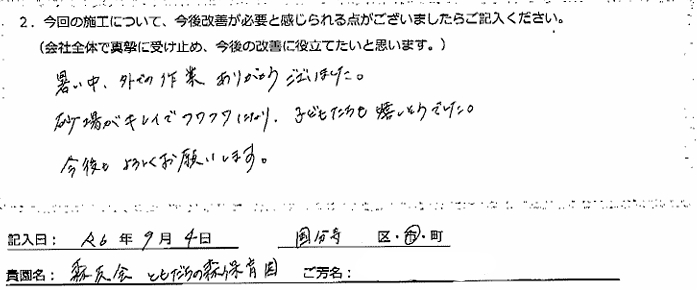 2．今回の施工について、今後改善が必要と感じられる点がございましたらご記入ください。
（会社全体で真摯に受け止め、今後の改善に役立てたいと思います。）
暑い中、外での作業ありがとうございました。
砂場がキレイでフワフワになり、子どもたちも嬉しそうでした。
今後もよろしくお願いします。
記入日： R6 年 9 月 4 日 国分寺 区・市・町
貴園名： 森友会 ともだちの森保育園 ご芳名：